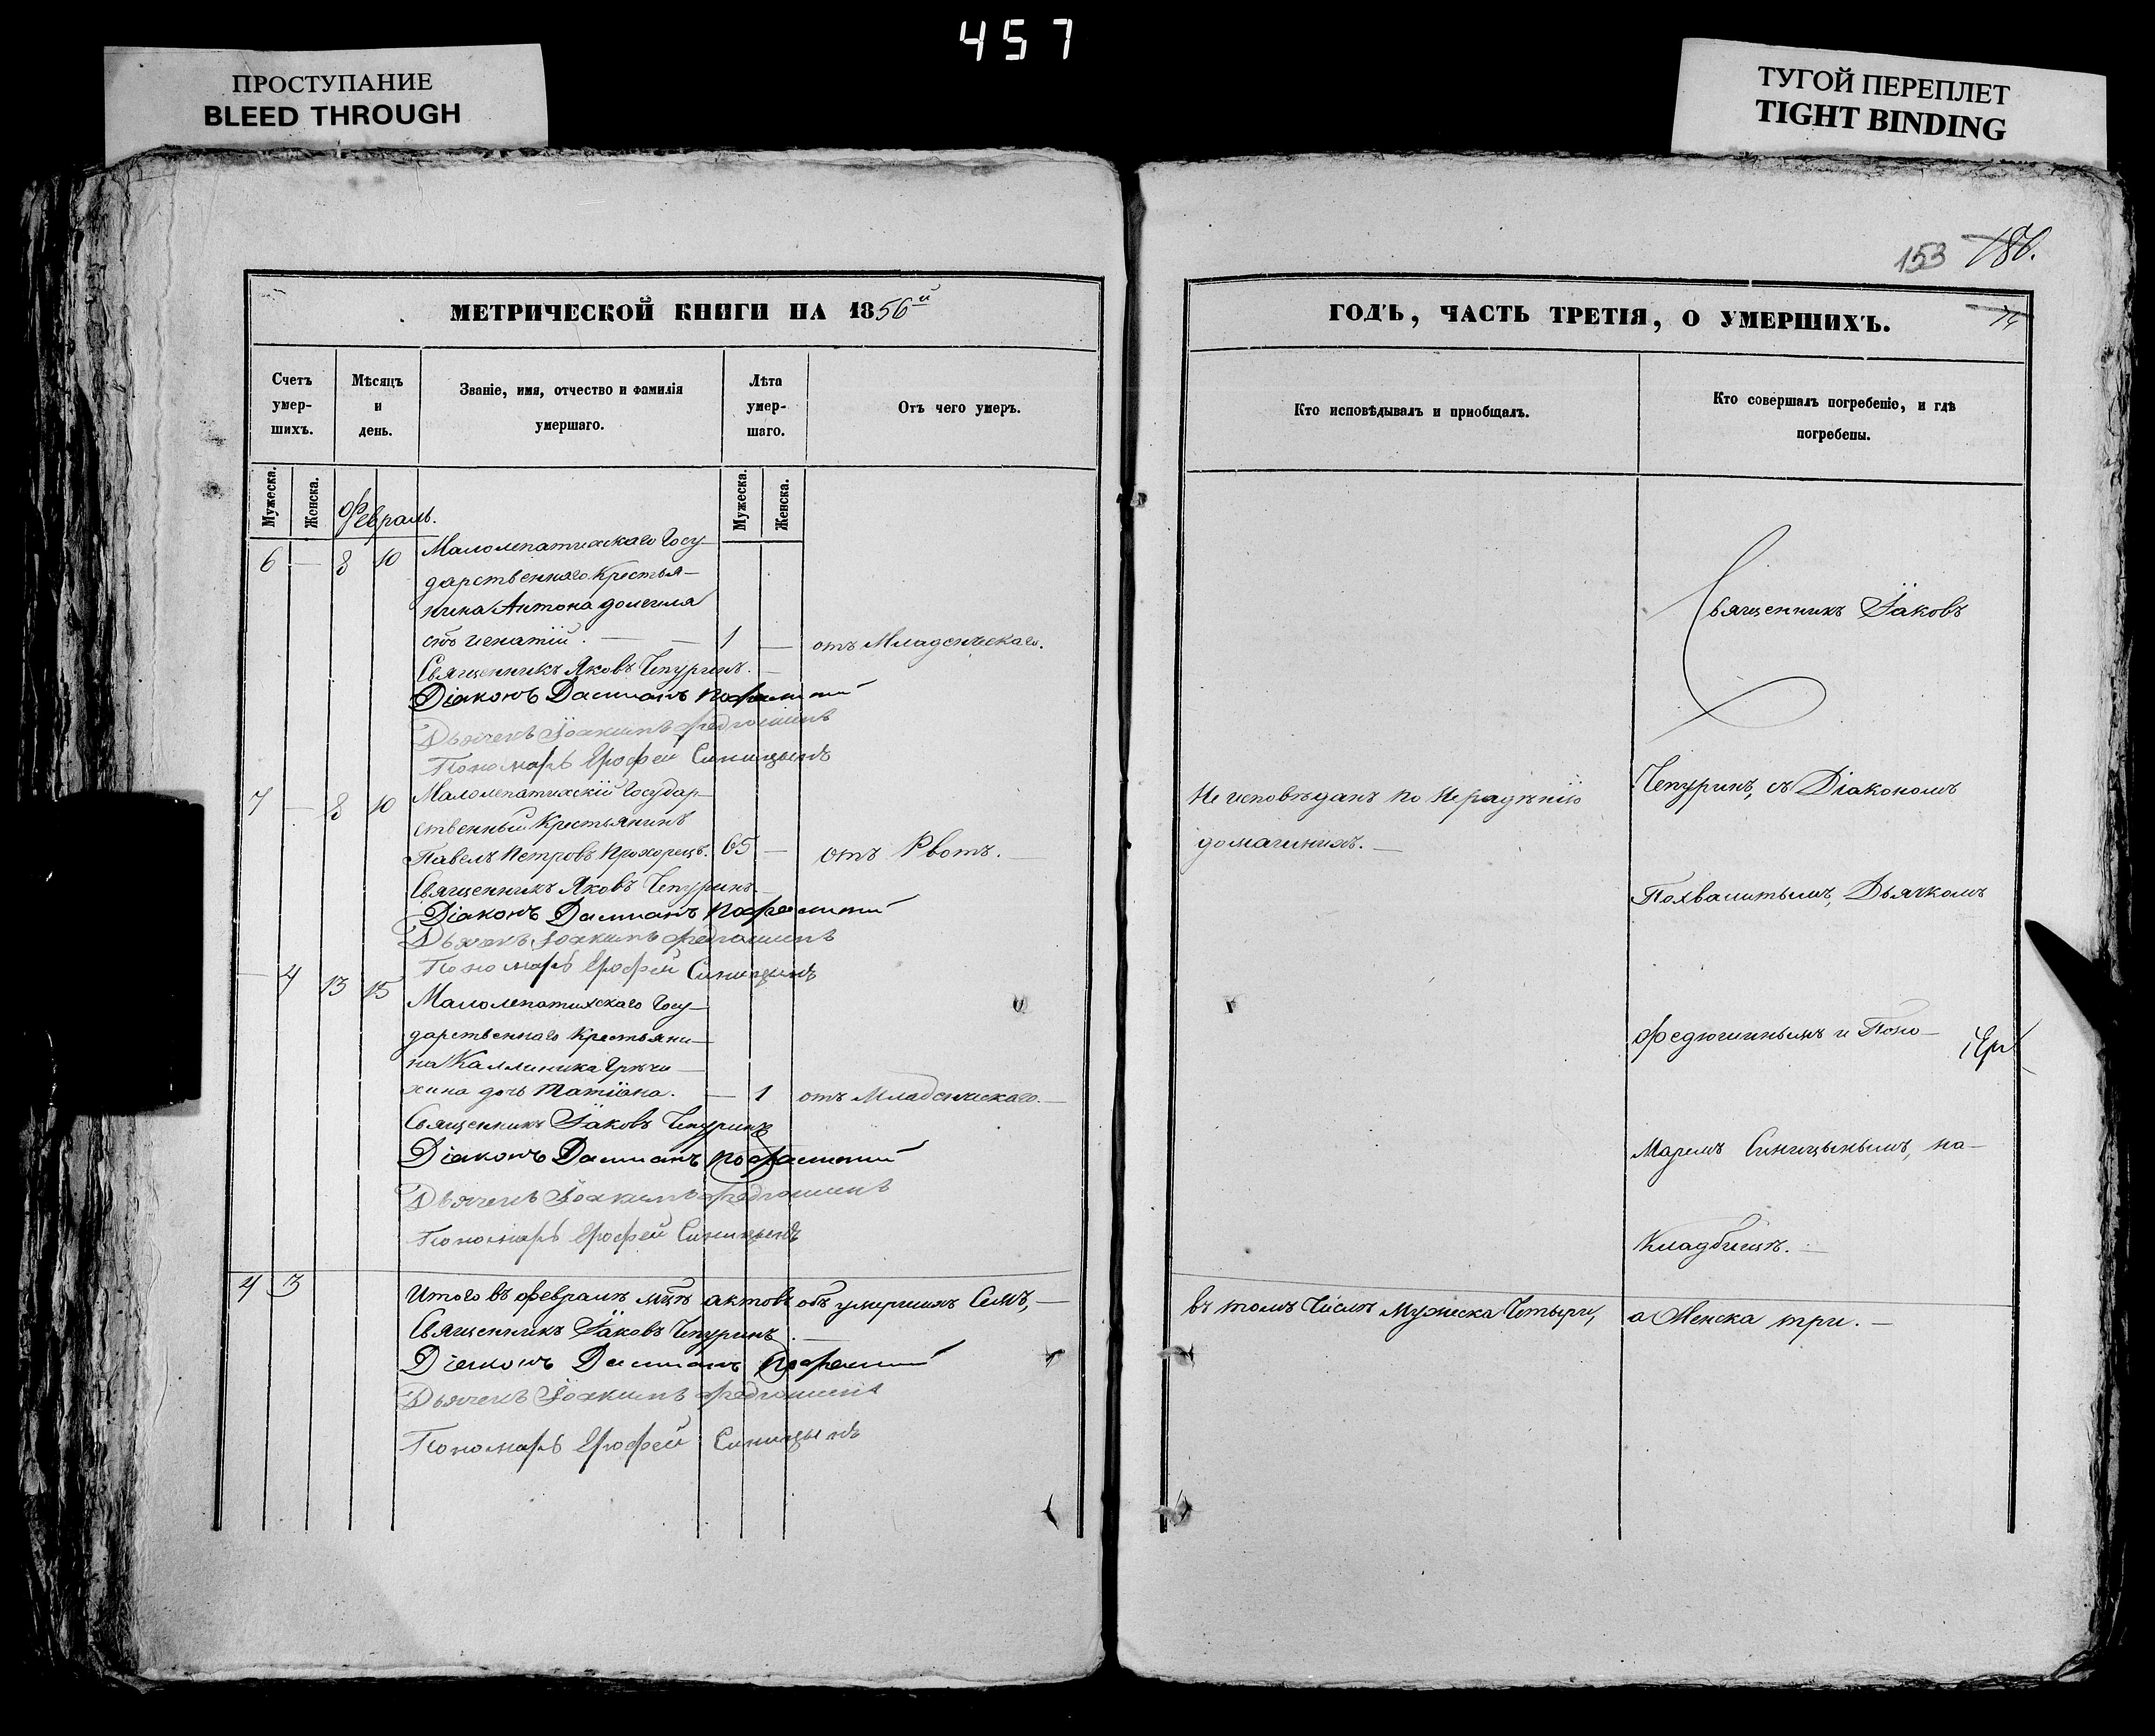 457
ПРОСТУПАНИЕ
BLEED THROUGH
ТУГОЙ ПЕРЕПЛЕТ
TIGHT BINDING
МЕТРИЧЕСКОЙ КНИГИ НА 1856й
Счетъ умер-шихъ.
Мѣсяцъ и день.
Званіе, имя, отчество и фамилія умершаго.
Лѣта умер-шаго.
Отъ чего умеръ.
Мужеска.
Женска.
Мужеска.
Женска.
Февраль.
6 — 8 10 Малолепатихскаго Госу-
дарственнаго Крестья-
нина Антона
сынъ Игнатій. — — 1 — отъ Младенческаго.
Священникъ Яковъ Чепуринъ.
Діаконъ Дамианъ
Дьячекъ Іоакимъ Федюшинъ
Пономарь Ерофей Синицынъ
7 — 8 10 Малолепатихскій Государ-
ственный Крестьянинъ
Павелъ Петровъ Прохорецъ. 65 — отъ Рвотъ.
Священникъ Яковъ Чепуринъ.
Діаконъ Дамианъ
Дьячекъ Іоакимъ Федюшинъ
Пономарь Ерофей Синицынъ
— 4 13 15
Малолепатихскаго Госу-
дарственнаго Крестьяни-
на Каллиника Гречи-
хина дочь Татіана. — 1 отъ Младенческаго. —
Священникъ Іаковъ Чепуринъ
Діаконъ Дамианъ
Дьячекъ Іоакимъ Федюшинъ
Пономарь Ерофей Синицынъ
4 3 Итого въ Февралѣ мцѣ актовъ объ умершихъ Семь, —
Священникъ Іаковъ Чепуринъ. —
Діаконъ Дамианъ
Дьячекъ Іоакимъ Федюшинъ
Пономарь Ерофей Синицынъ
153 186.
ГОДЪ, ЧАСТЬ ТРЕТІЯ, О УМЕРШИХЪ.
Кто исповѣдывалъ и приобщалъ.
Кто совершалъ погребеніе, и гдѣ погребены.
Священникъ Іаковъ
Не исповѣданъ по Нерадѣнію
домашнихъ. —
Чепуринъ, съ Діакономъ
Похвалитымъ, Дьячкомъ
Федюшинымъ и Поно-
Маремъ Синицынымъ, на-
Кладбищѣ. —
въ томъ Числѣ Мужеска Четыри, а Женска три. —